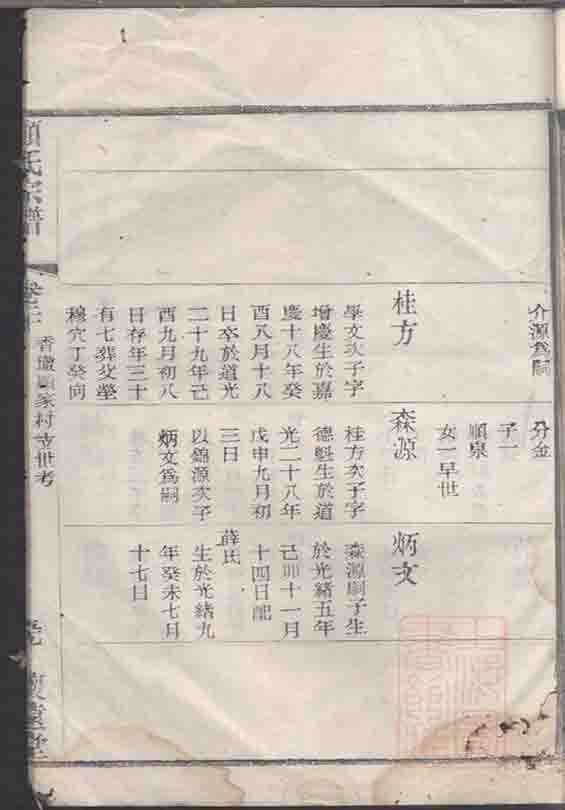 介源為嗣
桂方
學文次子字
增慶生於嘉
慶十八年癸
酉八月十八
日卒於道光
二十九年己
酉九月初八
日存年三十
有七葬父塋
穆穴丁癸向
分金
子一
順泉
女一早世
森源
桂方次子字
德魁生於道
光二十八年
戊申九月初
三日
以錦源次子
炳文爲嗣
炳文
森源嗣子生
於光緒五年
己卯十一月
十四日配
薛氏
生於光緒九
年癸未七月
十七日
氏宗譜
家村支世考